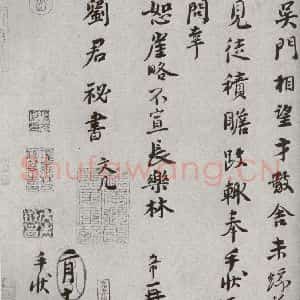 吳門相望才數舍未
見徒積瞻跂輙奉手狀
問幸
恕崖略不宣長樂林
劉君祕書
文几
手狀
Shufawang.CN